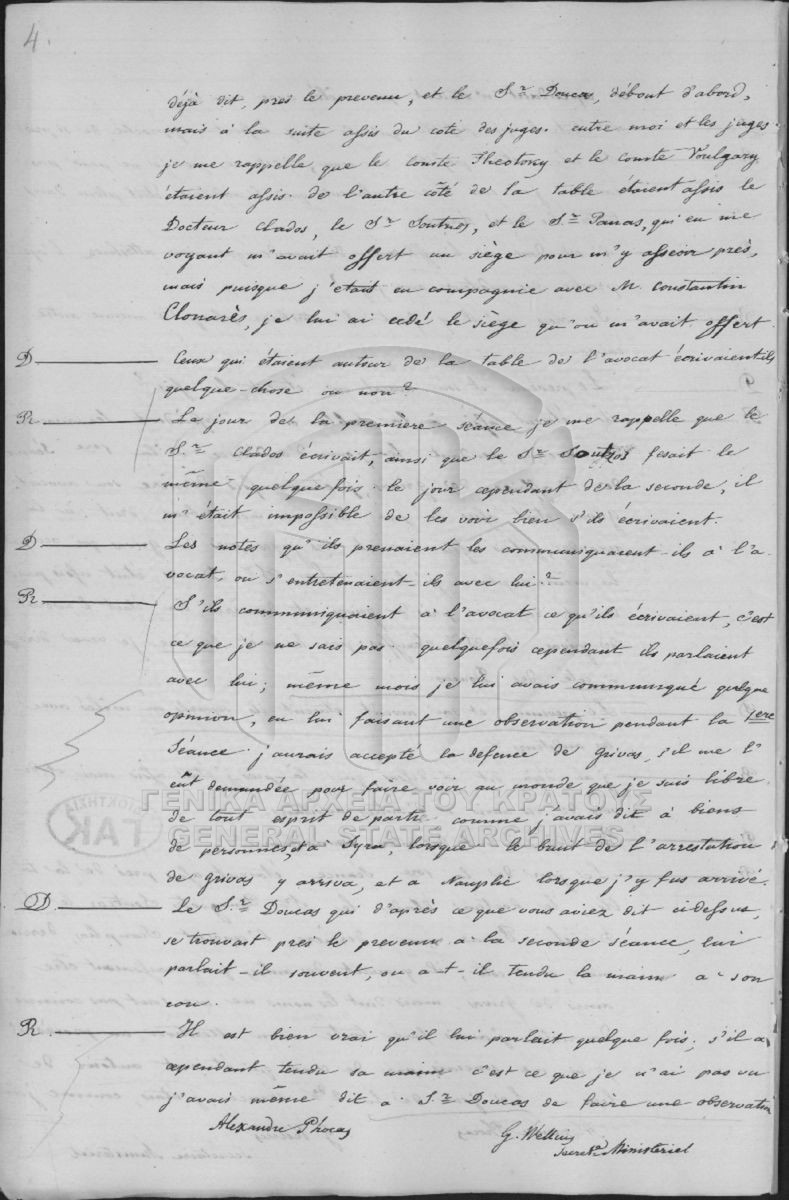 4.
déjà dit, pres le prevenu, et le S.r Doucas, débout d'abord,
mais à la suite assis du coté des juges. entre moi et les juges
je me rappelle, que le comte Theotoky et le comte Voulgary
étaient assis. de l'autre côté de la table étaient assis le
Docteur Clados, le S.r Soutzos, et le S.r Panas, qui en me
voyant m'avait offert un siège pour m'y asseoir près,
mais puisque j'etais en compagnie avec M. Constantin
Clonarès, je lui ai cedé le siège qu'on m'avait offert.
D Ceux qui étaient autour de la table de l'avocat écrivaient-ils
quelque-chose ou non?
R Le jour de la première séance je me rappelle que le
S.r Clados écrivait, ainsi que le S.r Soutzos fesait le
même quelque fois. le jour cependant de la seconde, il
m'était impossible de les voir bien s'ils écrivaient.
D Les notes qu'ils prenaient les communiquaient-ils à l'a-
vocat, ou s'entretenaient-ils avec lui?
R S'ils communiquaient à l'avocat ce qu'ils écrivaient, c'est
ce que je ne sais pas quelquefois cependant ils parlaient
avec lui; même mois je lui avais communiqué quelque
opinion, en lui faisant une observation pendant la 1ere
Séance. j'aurais accepté la defence de Grivas, s'il me l'
eût demandée pour faire voir au monde que je suis libre
de tout esprit de parti comme j'avais dit à biens
de personnes, et à Syra, lorsque le bruit de l'arrestation
de Grivas y arriva, et a Nauplie lorsque j'y fus arrivé.
D Le S.r Doucas qui d'après ce que vous aviez dit cidessus,
se trouvait pres le prevenu a la seconde séance, lui
parlait-il souvent, ou a-t-il tendu la main a son
cou.
R Il est bien vrai qu'il lui parlait quelque fois; s'il a
cependant tendu sa main c'est ce que je n'ai pas vu
j'avais même dit a S.r Doucas de faire une observation
Alexandre Phocas
G. Wellius
Secret.re Ministeriel
ΓΕΝΙΚΑ ΑΡΧΕΙΑ ΤΟΥ ΚΡΑΤΟΥΣ
GENERAL STATE ARCHIVES
ΙΔΙΟΚΤΗΣΙΑ
ΓΑΚ